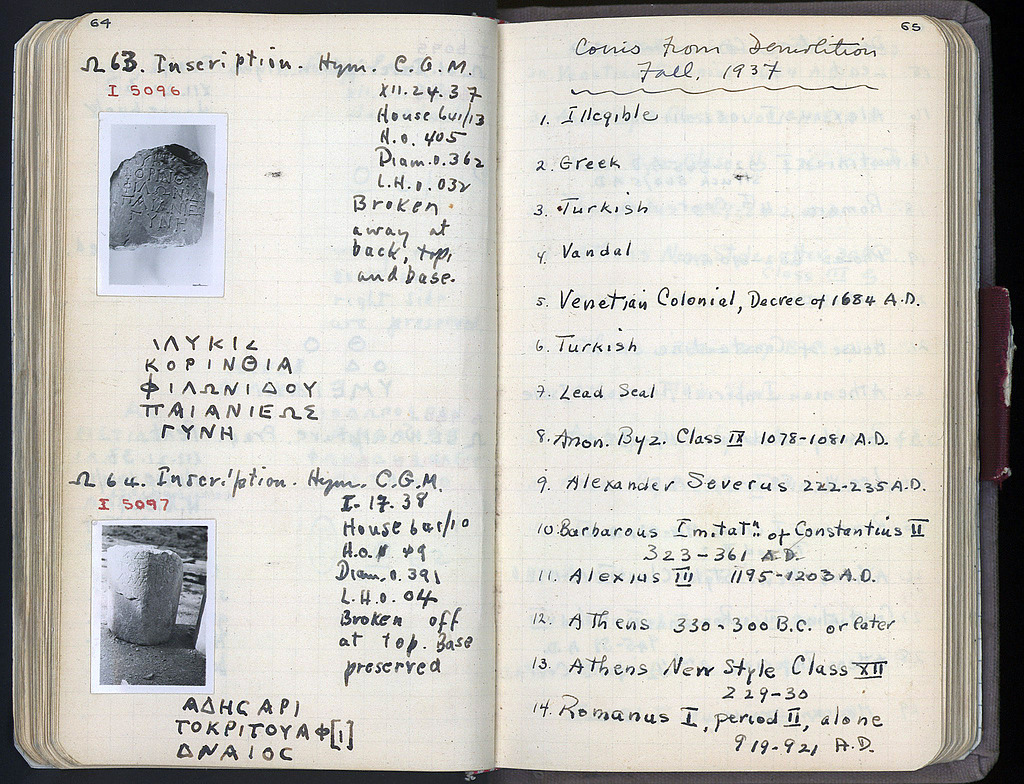 64
Ω 63. Inscription. Hym. C.G.M.
I 5096
XII.24.37
House 641/13
H.0.405
Diam.0.362
L.H.0.032
Broken
away at
back, top,
and base.
ΙΛΥΚΙΣ
ΚΟΡΙΝΘΙΑ
ΦΙΛΩΝΙΔΟΥ
ΠΑΙΑΝΙΕΩΣ
ΓΥΝΗ
Ω 64. Inscription. Hym. C.G.M.
I 5097
I-17.38
House 641/10
H.0.49
Diam.0.391
L.H.0.04
Broken off
at top. Base
preserved
ΑΔΗϹ ΑΡΙ
ΤΟΚΡΙΤΟΥΑΦ[Ι]
ΔΝΑΙΟϹ
65
Coins from Demolition
Fall, 1937
1. Illegible
2. Greek
3. Turkish
4. Vandal
5. Venetian Colonial, Decree of 1684 A.D.
6. Turkish
7. Lead Seal
8. Anon. Byz. Class IX 1078-1081 A.D.
9. Alexander Severus 222-235 A.D.
10. Barbarous Imitatn of Constantius II
323-361 A.D.
11. Alexius III 1195-1203 A.D.
12. Athens 330-300 B.C. or later
13. Athens New Style Class XII
229-30
14. Romanus I, period II, alone
919-921 A.D.